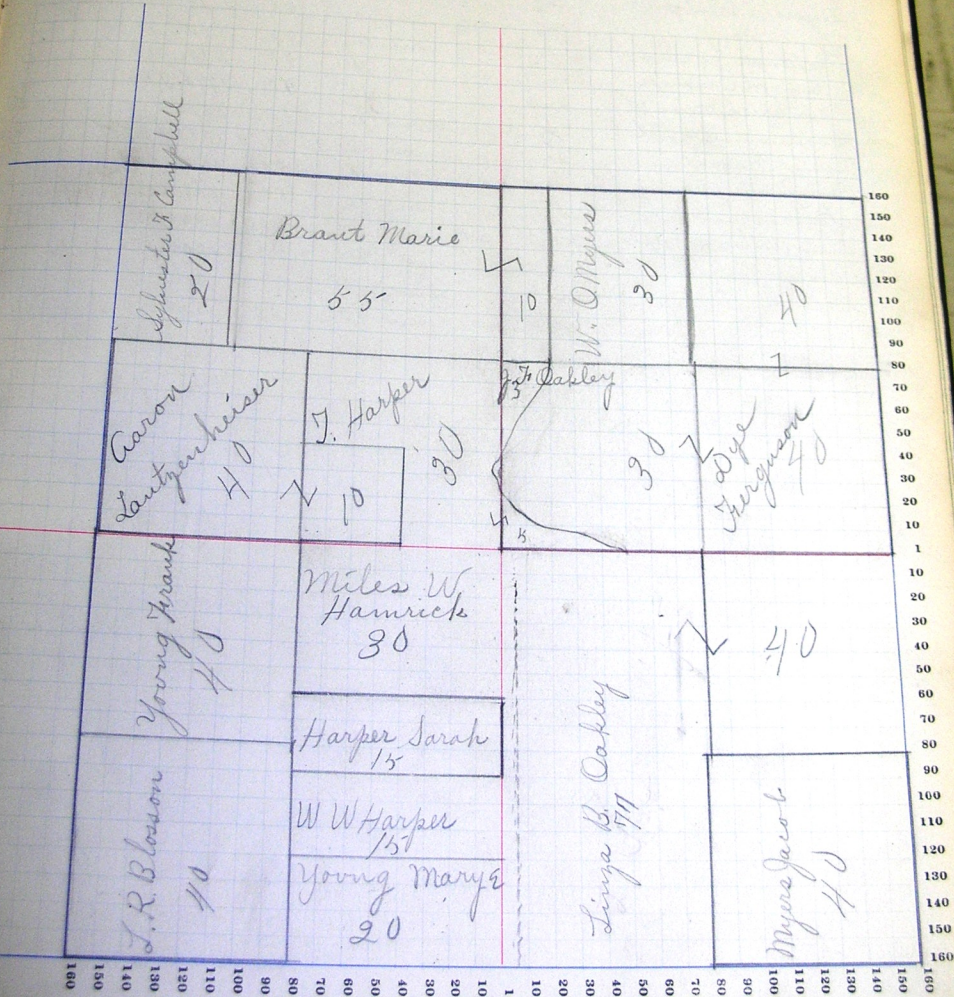 Sylvester F Campbell
20
Brant Marie
55
10
W. O Myers
30
40
Aaron
Lautzenheiser
40
T. Harper
30
10
J F Oakley
30
5
Dye
Ferguson
40
Young Frank
40
Miles W
Hamrick
30
40
Harper Sarah
15
W W Harper
15
Young Mary E
20
L. R. Blosson
40
Linza B. Oakley
Myers Jacob
40
160
150
140
130
120
110
100
90
80
70
60
50
40
30
20
10
1
10
20
30
40
50
60
70
80
90
100
110
120
130
140
150
160
160 150 140 130 120 110 100 90 80 70 60 50 40 30 20 10 1 10 20 30 40 50 60 70 80 90 100 110 120 130 140 150 160